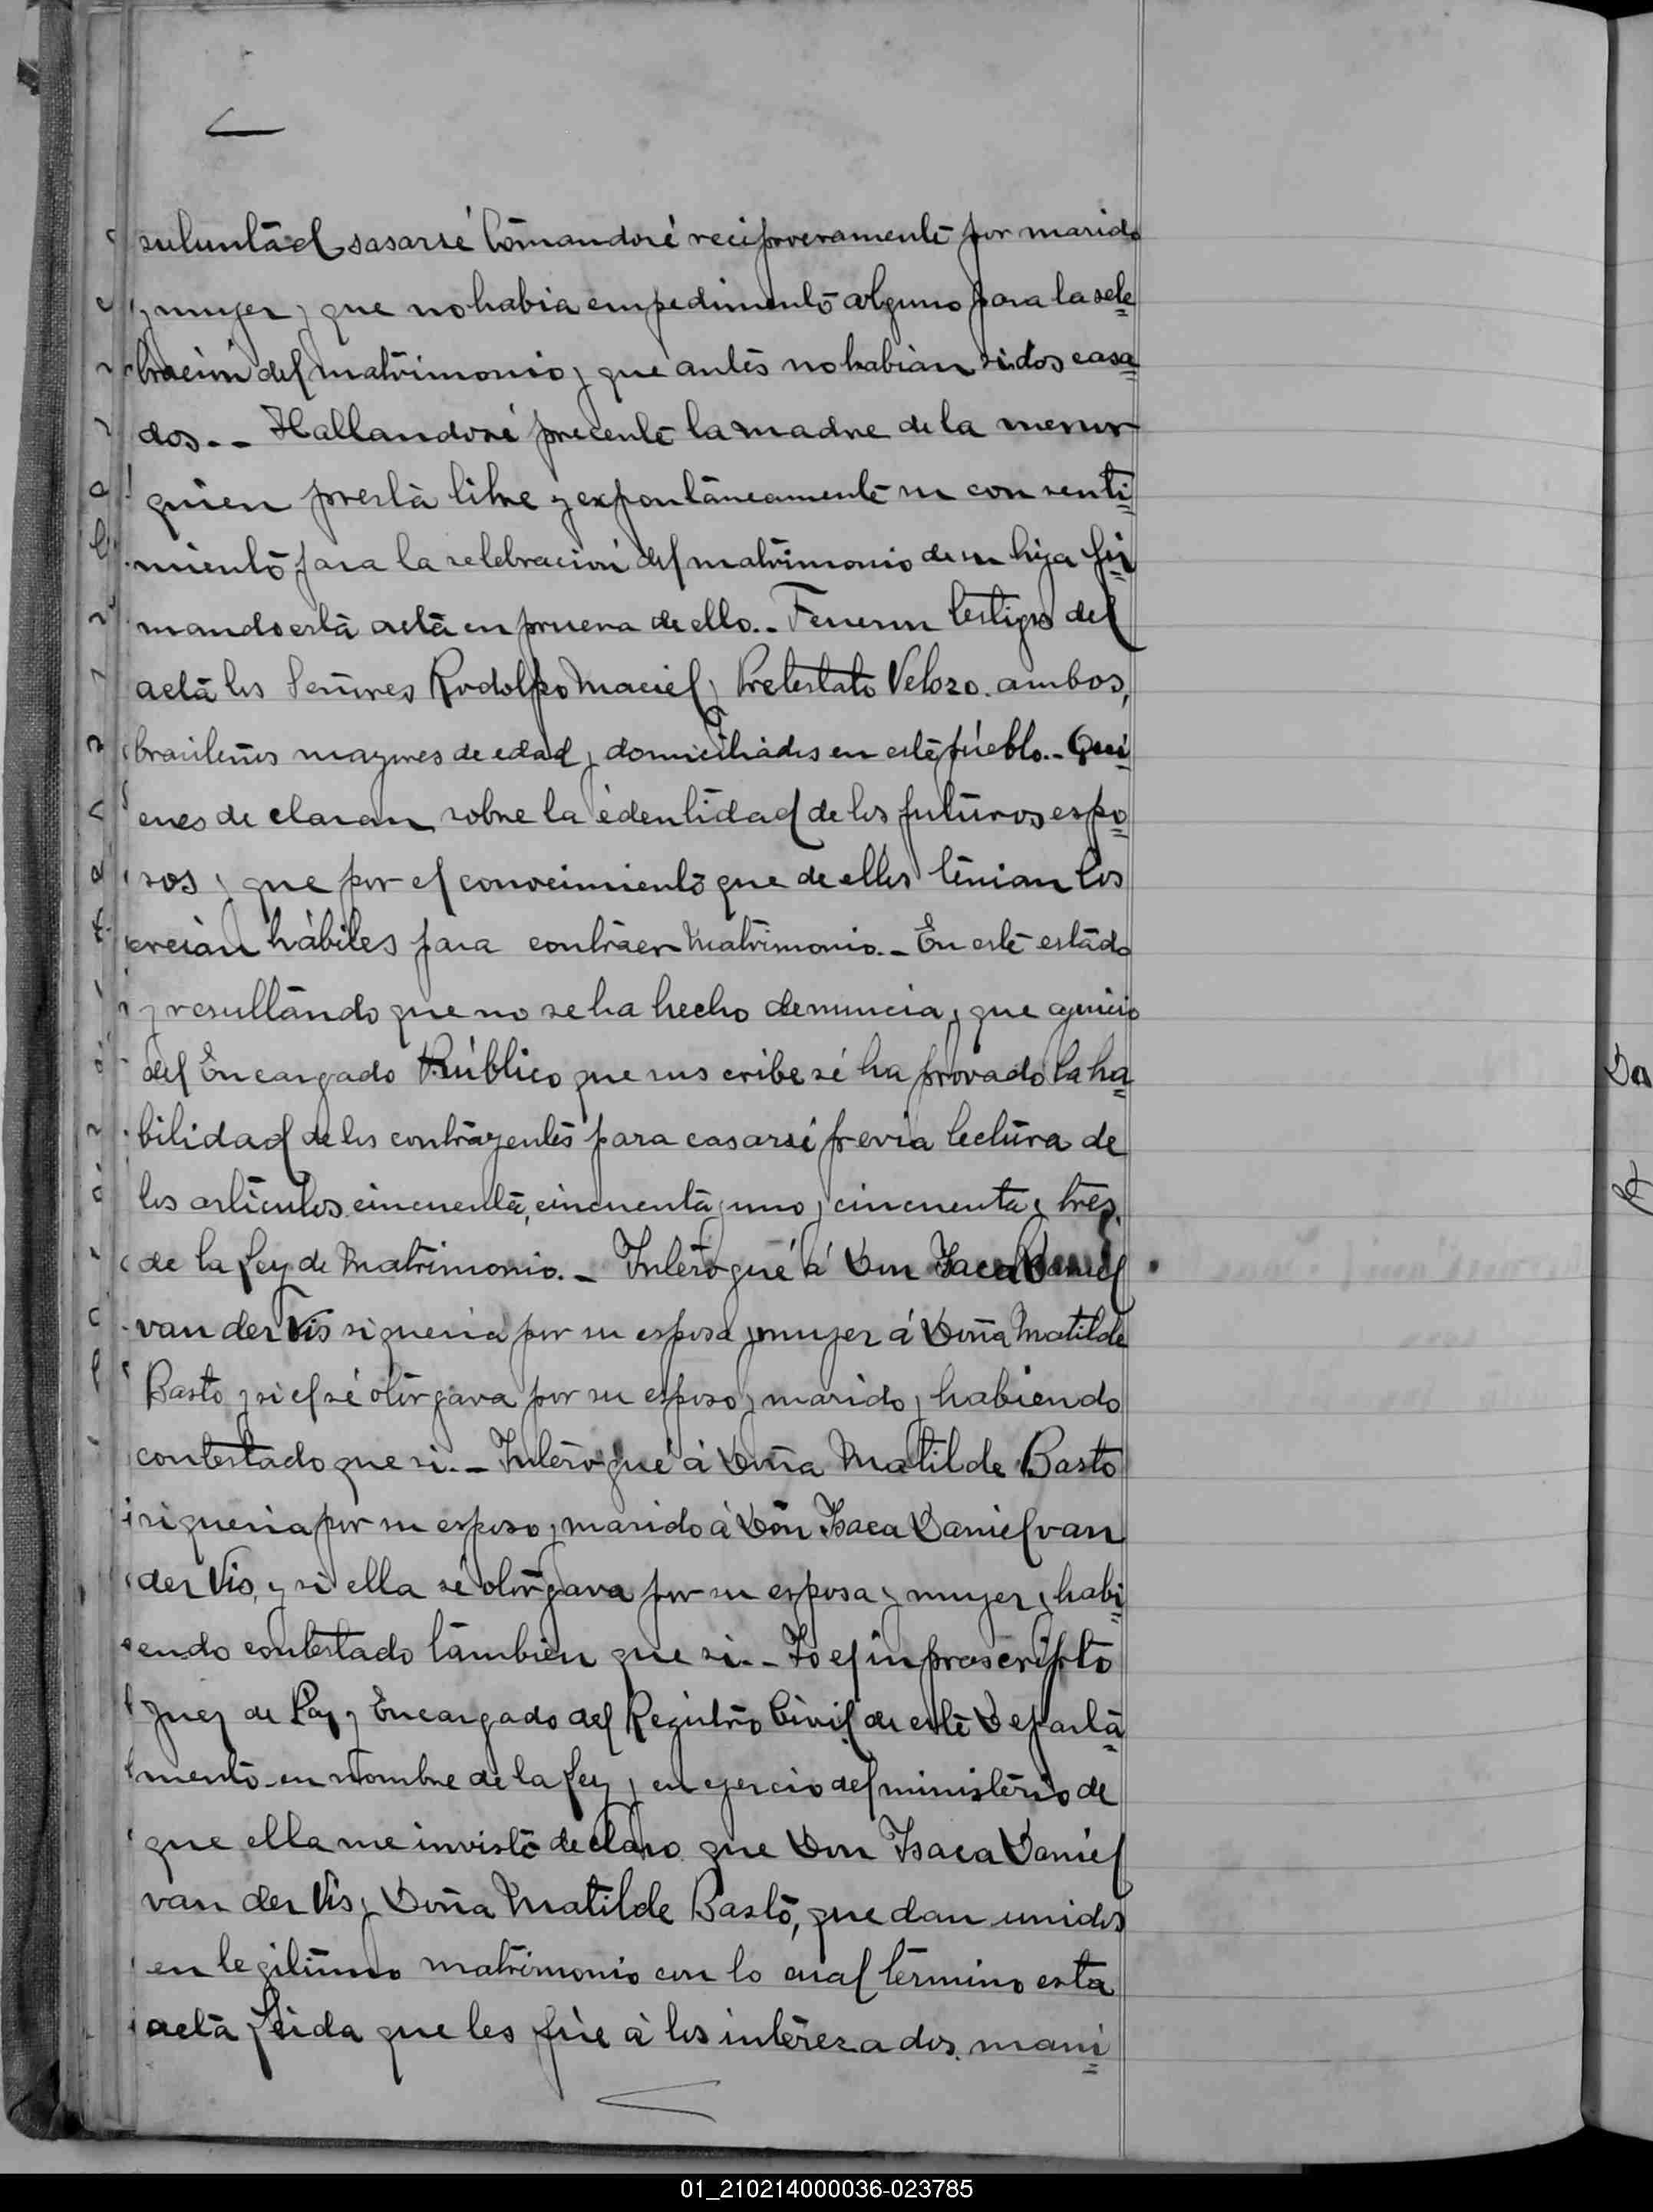 suluntad sasarsé Comandosé reciproveramente por marido
y mujer y que no habia empedimento alguno para la sele=
bracion del matrimonio y que antes no habian sidos casa=
dos.- Hallandosé precente la madre de la menor
quien presta libre y expontaneamente su consenti=
miento para la selebracion del matrimonio de su hija fir=
mando esta acta en prueva de ello.- Feuern testigos del
acta los Señores Rodolfo Maciel y Pretestato Velozo. ambos,
brasileños mayores de edad y domiciliados en este pueblo.- Qui=
enes declaran sobre la edentidad de los futuros espo=
sos y que por el conocimiento que de ellos tenian los
creian hábiles para contraer Matrimonio.- En este estado
y resultando que no se ha hecho denuncia y que ajuicio
del Encargado Público que suscribe sé ha provado la ha=
bilidad de los contrayentes para casarsé previa lectura de
los articulos cincuenta, cincuenta y uno y cincuenta y tres,
de la Ley de Matrimonio.- Interogué á Don Isaca Daniel
van der Vis si queria por su esposa y mujer á Doña Matilde
Basto y si el sé otorgava por su esposo y marido y habiendo
contestado que si.- Interogué á Doña Matilde Basto
si queria por su esposo y marido á Don Isaca Daniel van
der Vis, y si ella sé otorgava por su esposa y mujer y habi=
endo contestado tambien que si.- Yo el inprascripto
Juez de Paz y Encargado del Registro Civil de este Departa=
mento en nombre de la Ley y en ejercio del ministerio de
que ella me inviste declaro que Don Isaca Daniel
van der Vis y Doña Matilde Basto, quedan unidos
en legitimo matrimonio con lo cual termino esta
acta y leida que les fúe á los interezados, mani=
01_210214000036-023785